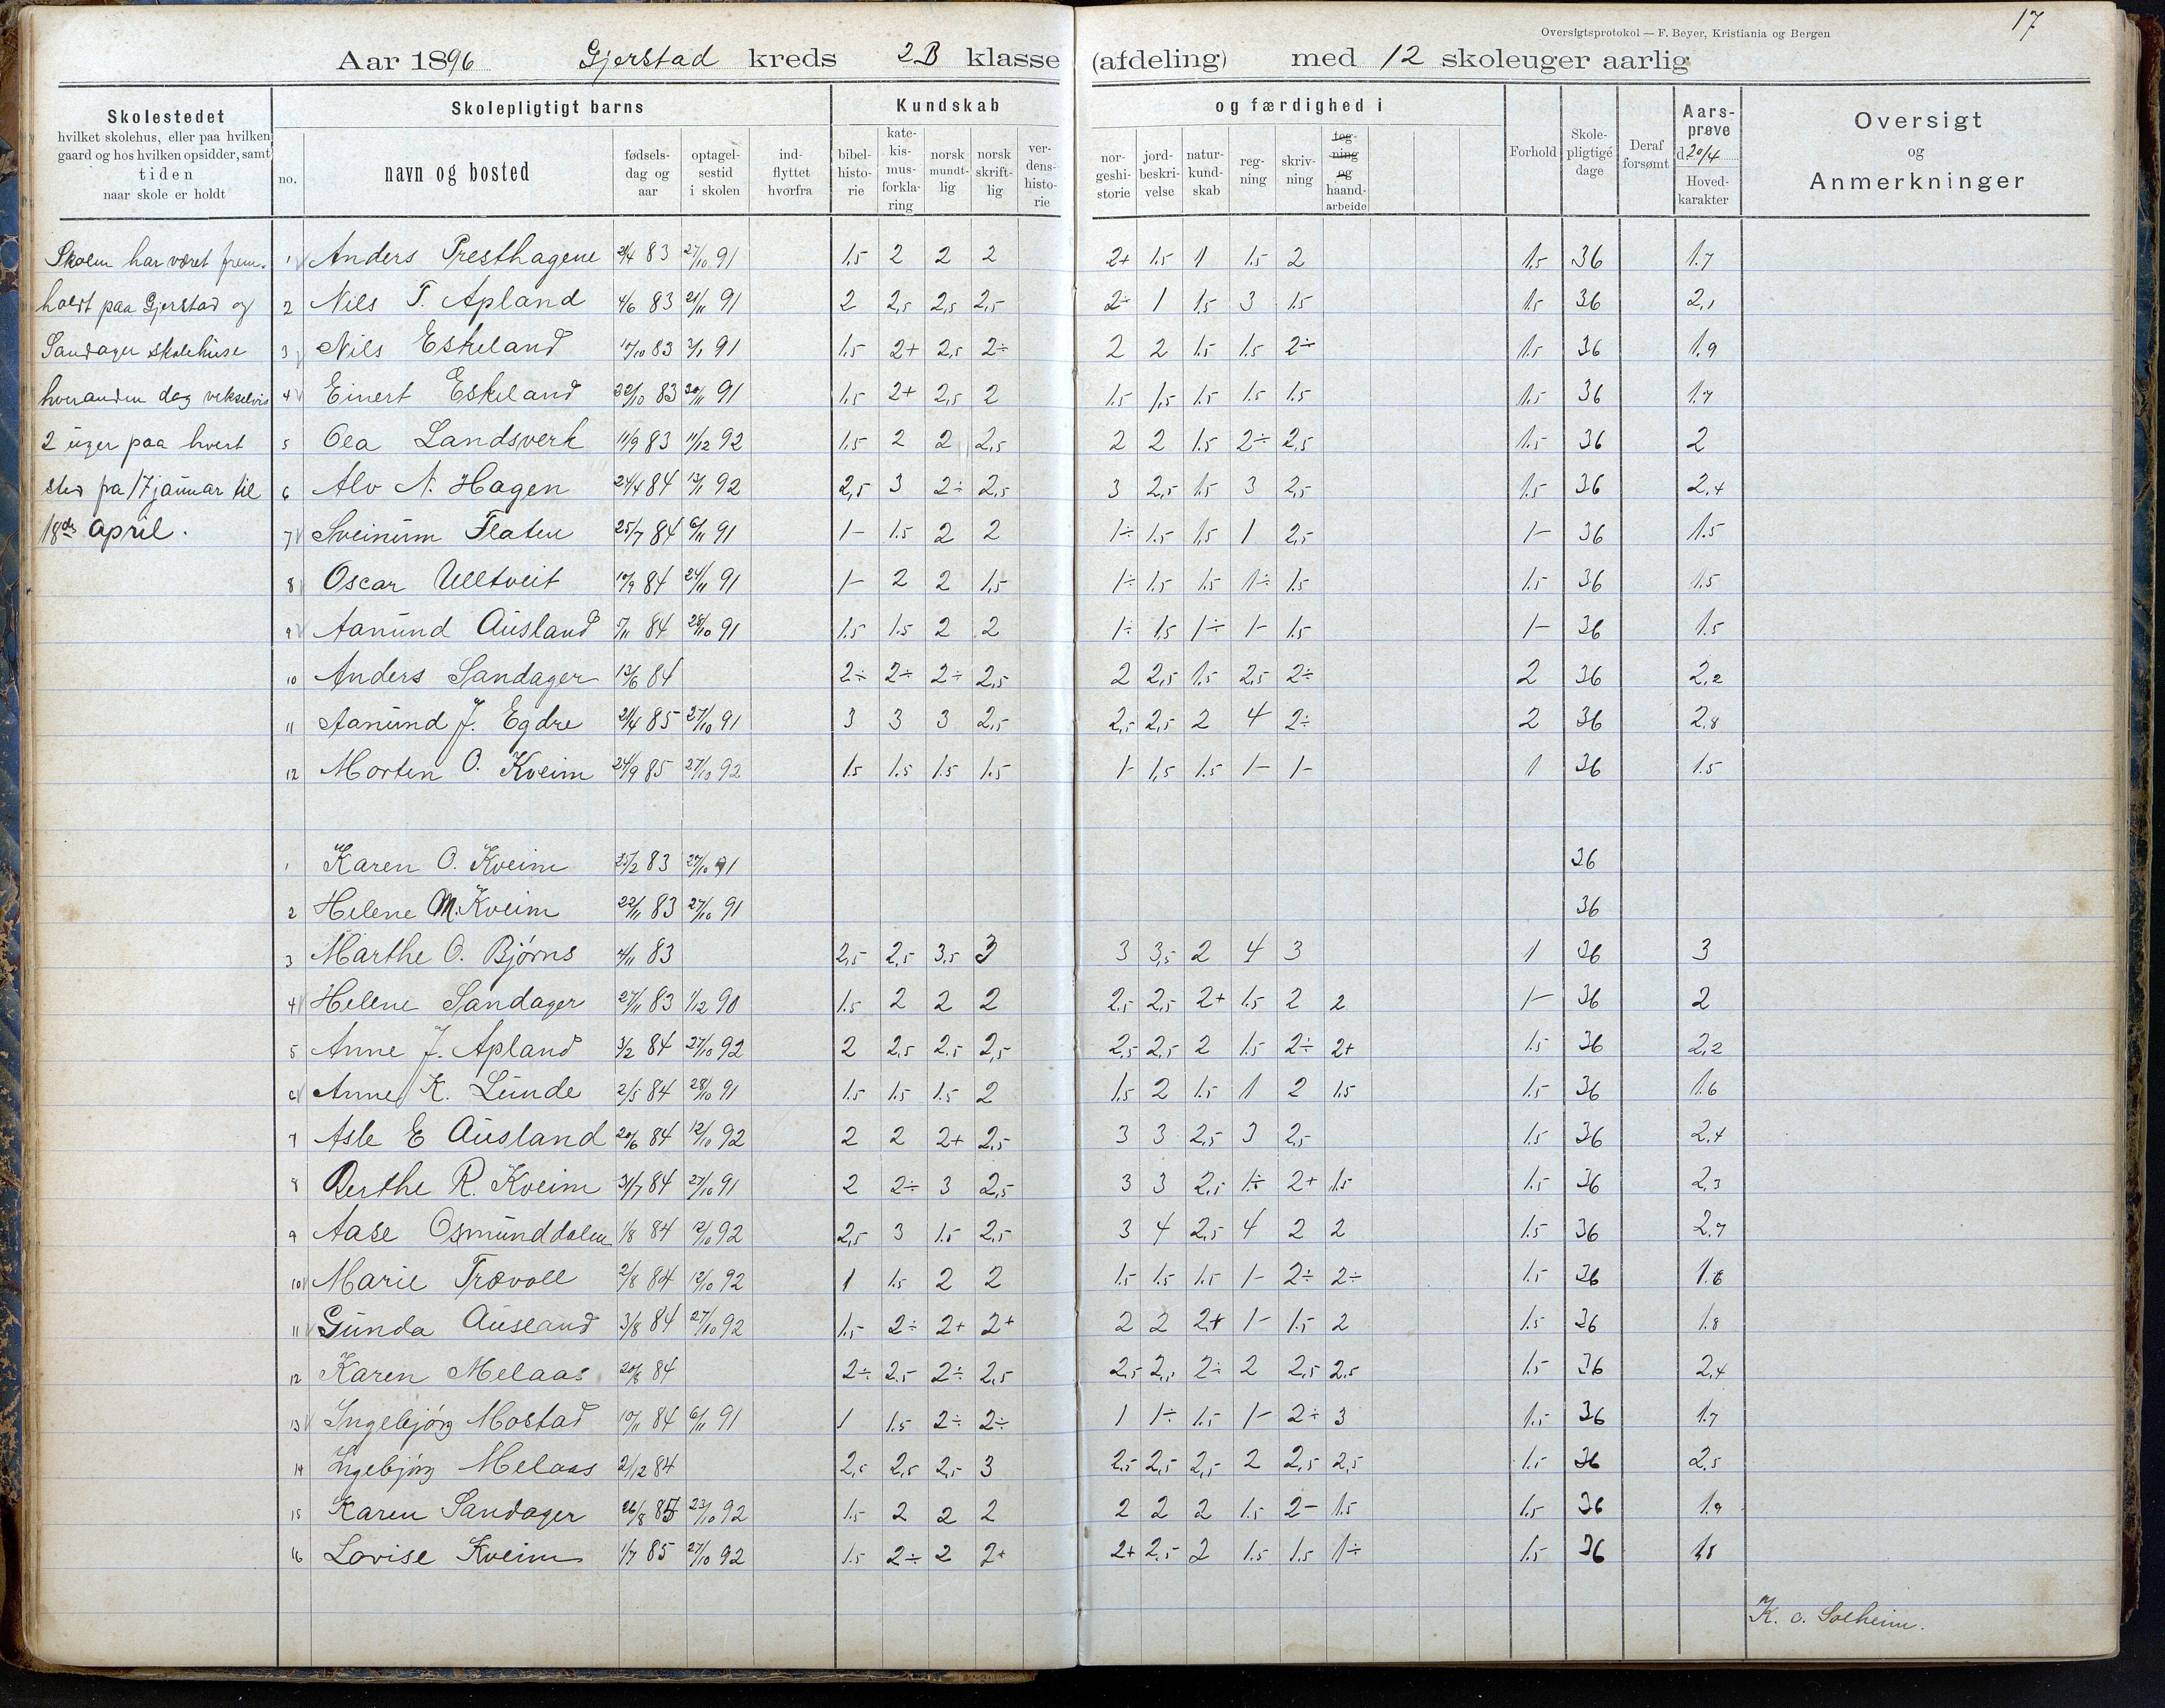 17
Oversigtsprotokol — F. Beyer, Kristiania og Bergen
Aar 1896 Gjerstad kreds 2B klasse (afdeling) med 12 skoleuger aarlig
Skolestedet
hvilket skolehus, eller paa hvilken
gaard og hos hvilken opsidder, samt
tiden
naar skole er holdt
Skolepligtigt barns
no.
navn og bosted
fødsels-
dag og
aar
optagel-
sestid
i skolen
ind-
flyttet
hvorfra
Kundskab
bibel-
histo-
rie
kate-
kis-
mus-
forkla-
ring
norsk
mundt-
lig
norsk
skrift-
lig
ver-
dens-
histo-
rie
og færdighed i
nor-
geshi-
storie
jord-
beskri-
velse
natur-
kund-
skab
reg-
ning
skriv-
ning
teg-
ning
og
haand-
arbeide
Forhold
Skole-
pligtige
dage
Deraf
forsømt
Aars-
prøve
d. 20/4
Hoved-
karakter
Oversigt
og
Anmerkninger
Skolen har været frem-
holdt paa Gjerstad og
Sandager skolehuse
hveranden dag vekselvis
2 uger paa hvert
sted fra 17 januar til
18de april.
1 Anders Presthagene 21/4 83 27/10 91 1.5 2 2 2 2+ 1.5 1 1.5 2 1.5 36 1.7
2 Nils T. Apland 4/6 83 21/11 91 2 2,5 2,5 2,5 2÷ 1 1.5 3 1.5 1.5 36 2,1
3 Nils Eskeland 17/10 83 3/1 91 1.5 2+ 2,5 2÷ 2 2 1.5 1.5 2÷ 1.5 36 1.9
4 Einert Eskeland 22/10 83 20/11 91 1.5 2+ 2,5 2 1.5 1,5 1.5 1.5 1.5 1.5 36 1.7
5 Olea Landsverk 11/9 83 11/12 92 1.5 2 2 2,5 2 2 1.5 2÷ 2,5 1.5 36 2
6 Alv N. Hagen 24/4 84 13/1 92 2,5 3 2÷ 2,5 3 2,5 1.5 3 2,5 1.5 36 2,4
7 Sveinum Flaten 25/7 84 6/11 91 1- 1.5 2 2 1÷ 1.5 1,5 1 2,5 1- 36 1.5
8 Oscar Ulltveit 10/9 84 24/11 91 1- 2 2 1,5 1÷ 1.5 1.5 1÷ 1.5 1.5 36 1.5
9 Aanund Ausland 7/11 84 28/10 91 1.5 1.5 2 2 1÷ 1,5 1÷ 1- 1.5 1- 36 1.5
10 Anders Sandager 13/6 84 2÷ 2÷ 2÷ 2,5 2 2,5 1.5 2,5 2÷ 2 36 2,2
11 Aanund J. Egdre 21/4 85 27/10 91 3 3 3 2,5 2,5 2,5 2 4 2÷ 2 36 2,8
12 Morten O. Kveim 24/9 85 27/10 92 1.5 1.5 1.5 1.5 1- 1,5 1.5 1- 1- 1 36 1.5
1 Karen O. Kveim 25/2 83 27/10 91 36
2 Helene M. Kveim 22/11 83 27/10 91 36
3 Marthe O. Bjørns 4/11 83 2,5 2,5 3,5 3 3 3,5 2 4 3 1 36 3
4 Helene Sandager 27/11 83 1/12 90 1.5 2 2 2 2,5 2,5 2+ 1.5 2 2 1- 36 2
5 Anne J. Apland 3/2 84 27/10 92 2 2,5 2.5 2,5 2,5 2,5 2 1.5 2÷ 2+ 1.5 36 2,2
6 Anne K. Lunde 2/5 84 28/10 91 1.5 1.5 1.5 2 1.5 2 1.5 1 2 1.5 1.5 36 1.6
7 Asle E Ausland 20/6 84 12/10 92 2 2 2+ 2,5 3 3 2,5 3 2,5 1.5 36 2,4
8 Berthe R. Kveim 31/7 84 27/10 91 2 2÷ 3 2,5 3 3 2,5 1÷ 2+ 1.5 1.5 36 2,3
9 Aase Osmunddalen 1/8 84 12/10 92 2,5 3 1.5 2,5 3 4 2,5 4 2 2 1.5 36 2.7
10 Marie Trævoll 2/8 84 12/10 92 1 1.5 2 2 1.5 1.5 1.5 1- 2÷ 2÷ 1.5 36 1.6
11 Gunda Ausland 3/8 84 27/10 92 1.5 2÷ 2+ 2+ 2 2 2+ 1- 1.5 2 1.5 36 1.8
12 Karen Melaas 20/8 84 2÷ 2.5 2÷ 2,5 2,5 2,5 2÷ 2 2,5 2.5 1.5 36 2,4
13 Ingebjørg Mostad 10/11 84 6/11 91 1 1.5 2÷ 2÷ 1 1÷ 1.5 1- 2÷ 3 1.5 36 1.7
14 Ingebjørg Melaas 2/12 84 2,5 2,5 2,5 3 2,5 2,5 2,5 2 2,5 2,5 1.5 36 2,5
15 Karen Sandager 26/8 85 23/10 92 1.5 2 2 2 2 2 2 1.5 2- 1.5 1.5 36 1.9
16 Lovise Kveim 1/7 85 27/10 92 1.5 2÷ 2 2+ 2+ 2,5 2 1.5 1.5 1÷ 1.5 36 1,8
K. O. Solheim.